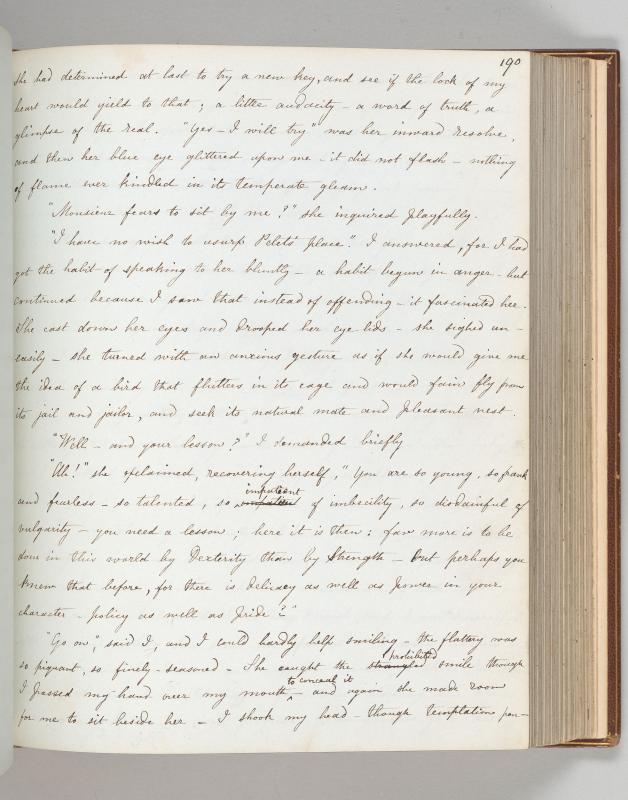 190
she had determined at last to try a new key, and see if the lock of my
heart would yield to that; a little audacity - a word of truth, a
glimpse of the real. "Yes - I will try" was her inward resolve,
and then her blue eye glittered upon me - it did not flash - nothing
of flame ever kindled in its temperate gleam.
"Monsieur fears to sit by me?" she inquired playfully.
"I have no wish to usurp Pelet's place." I answered, for I had
got the habit of speaking to her bluntly - a habit begun in anger - but
continued because I saw that instead of offending - it fascinated her.
She cast down her eyes and drooped her eye-lids - she sighed un-
easily - she turned with an anxious gesture as if she would give me
the idea of a bird that flutters in its cage and would fain fly from
its jail and jailor, and seek its natural mate and pleasant nest.
"Well - and your lesson?" I demanded briefly
"Ah!" she exclaimed, recovering herself, "You are so young, so frank
impatient
and fearless - so talented, so of imbecility, so disdainful of
vulgarity - you need a lesson; here it is then: far more is to be
done in this world by Dexterity than by Strength - but perhaps you
knew that before, for there is delicacy as well as power in your
character - policy as well as Pride?"
"Go on"; said I, and I could hardly help smiling - the flattery was
prohibited
so piquant, so finely-seasoned - She caught the strangled smile though
to conceal it
I passed my hand over my mouth - and again she made room
for me to sit beside her - I shook my head - though temptation pen-